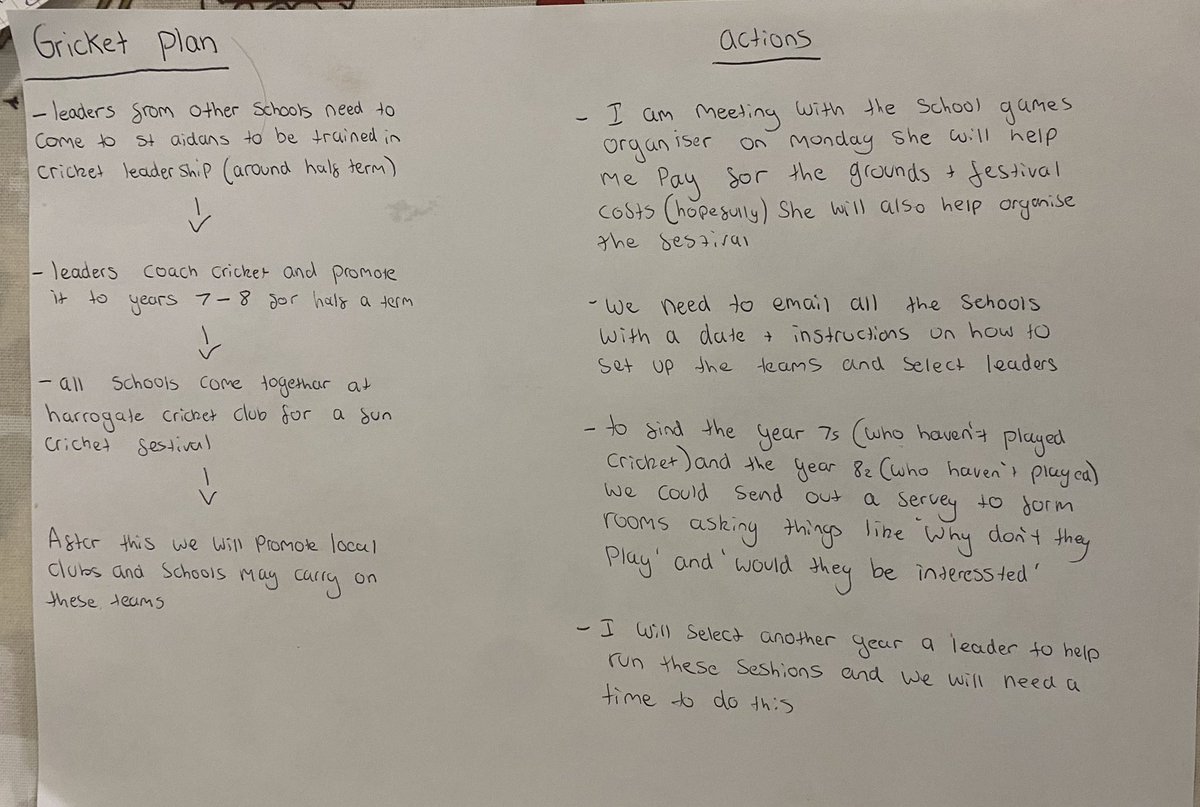 Cricket Plan
- leaders from other schools need to
come to st aidans to be trained in
cricket leadership (around half term)
- leaders coach cricket and promote
it to years 7-8 for half a term
- all schools come together at
harrogate cricket club for a fun
cricket festival
After this we will promote local
clubs and schools may carry on
these teams
actions
- I am meeting with the school games
organiser on monday she will help
me pay for the grounds + festival
costs (hopefully) She will also help organise
the festival
- we need to email all the schools
with a date + instructions on how to
set up the teams and select leaders
- to find the year 7s (who haven't played
cricket) and the year 8s (who haven't played)
we could send out a servey to form
rooms asking things like 'Why don't they
Play' and 'would they be interessted'
- I will select another year a leader to help
run these seshions and we will need a
time to do this